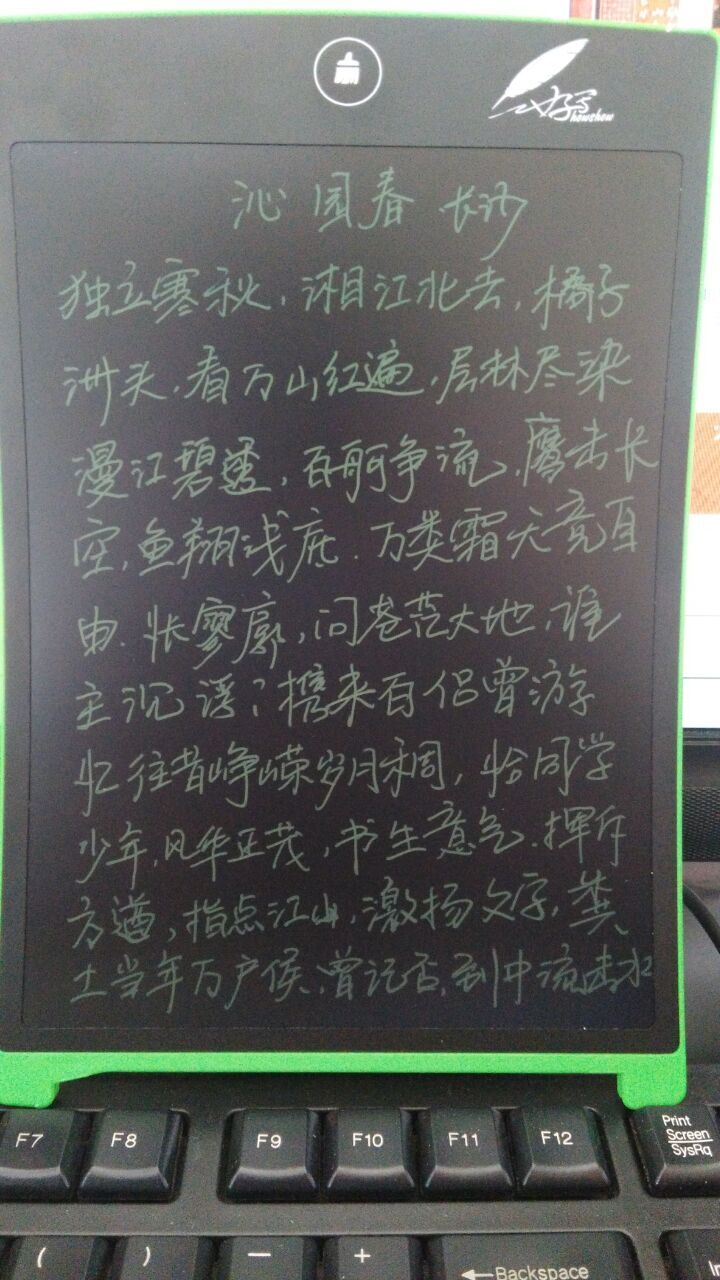 好写
howshow
沁园春 长沙
独立寒秋，湘江北去，橘子
洲头，看万山红遍，层林尽染
漫江碧透，百舸争流，鹰击长
空，鱼翔浅底．万类霜天竞自
由．怅寥廓，问苍茫大地，谁
主沉浮？携来百侣曾游
忆往昔峥嵘岁月稠，恰同学
少年，风华正茂，书生意气．挥斥
方遒，指点江山，激扬文字，粪
土当年万户侯、曾记否，到中流击水
F7 F8 F9 F10 F11 F12 Print
Screen
SysRq
( ) — + ←Backspace